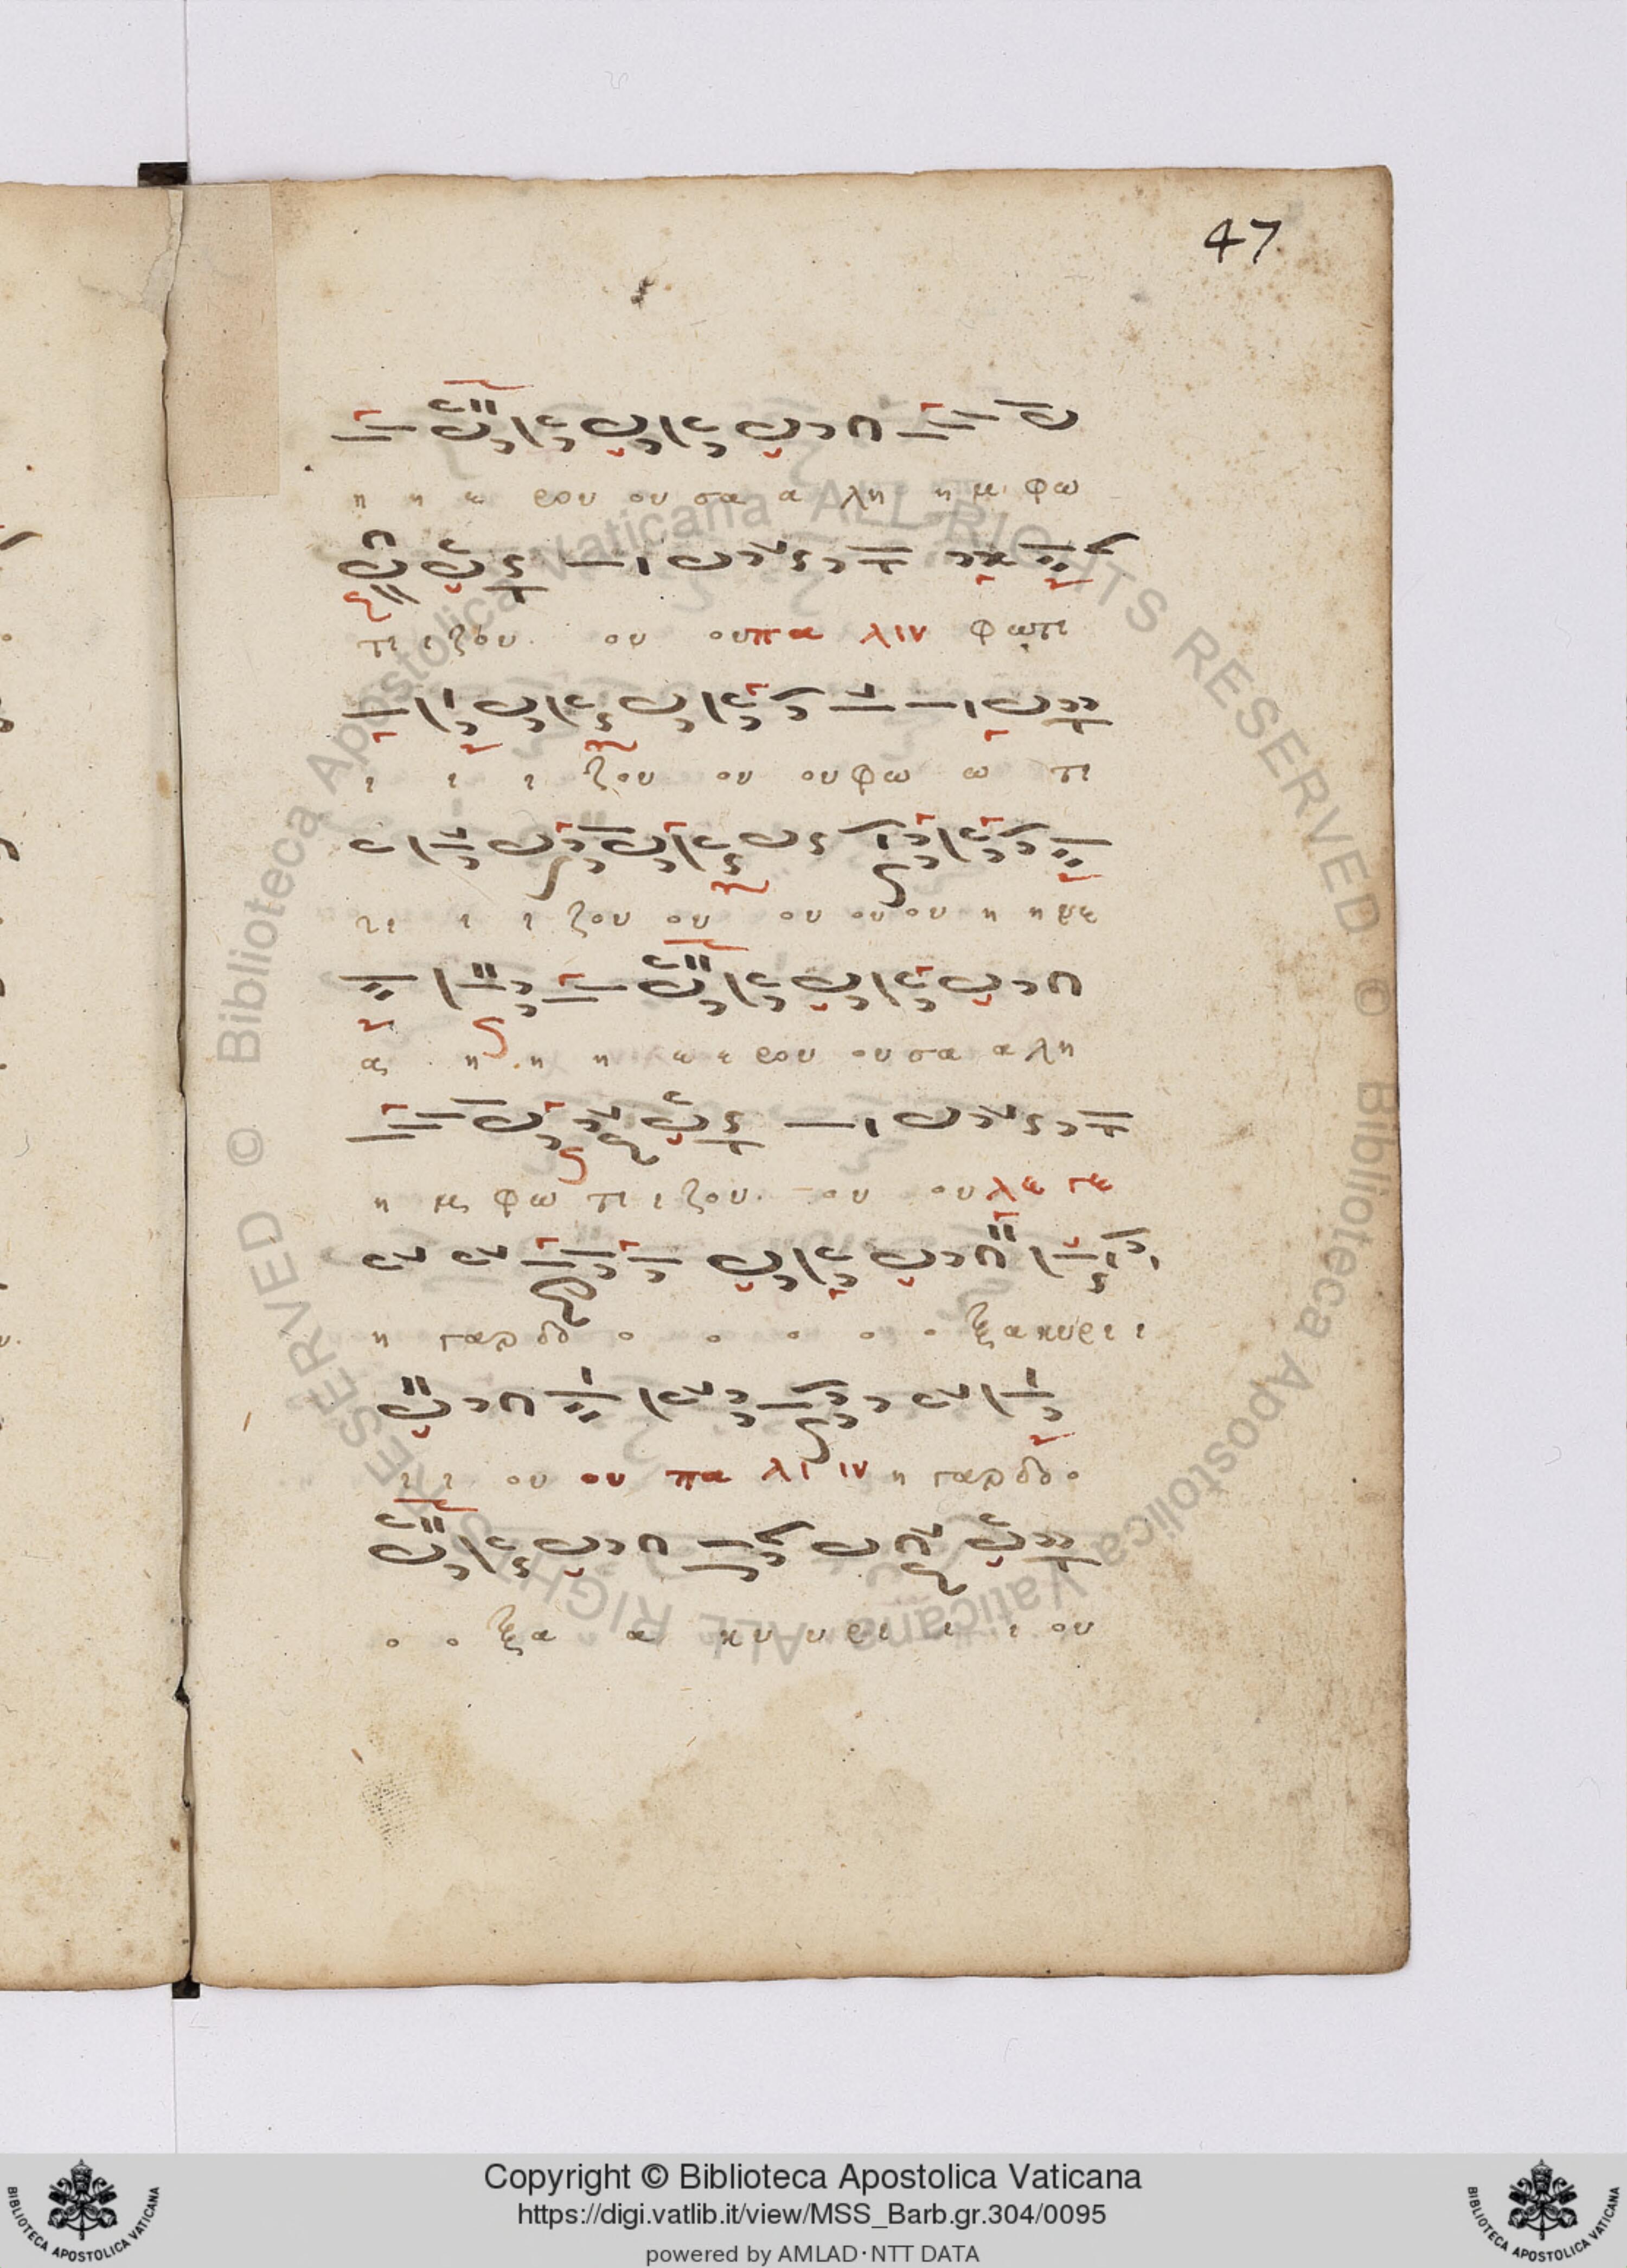 47
η η ε ρου ου σα α λη η με φω
τι ι ζου ου ου πα λιν φω τι
ι ι ι ζου ου ου φω ω τι
τι ι ι ζου ου ου ου ου η η ρε
ας η η η ε ε ρου ου σα α λη
η με φω τι ι ζου ου ου λε γε
η παρ δο ο ο ο ο ο ξα κυ ρι ι
ι ι ου ου πα λι ιν η παρ δο ο
ο ο ξα α κυ υ ρι ι ι ου
Biblioteca Apostolica Vaticana ALL RIGHTS RESERVED ©
Biblioteca Apostolica Vaticana ALL RIGHTS RESERVED ©
Copyright © Biblioteca Apostolica Vaticana
https://digi.vatlib.it/view/MSS_Barb.gr.304/0095
powered by AMLAD·NTT DATA
BIBLIOTECA APOSTOLICA VATICANA
BIBLIOTECA APOSTOLICA VATICANA